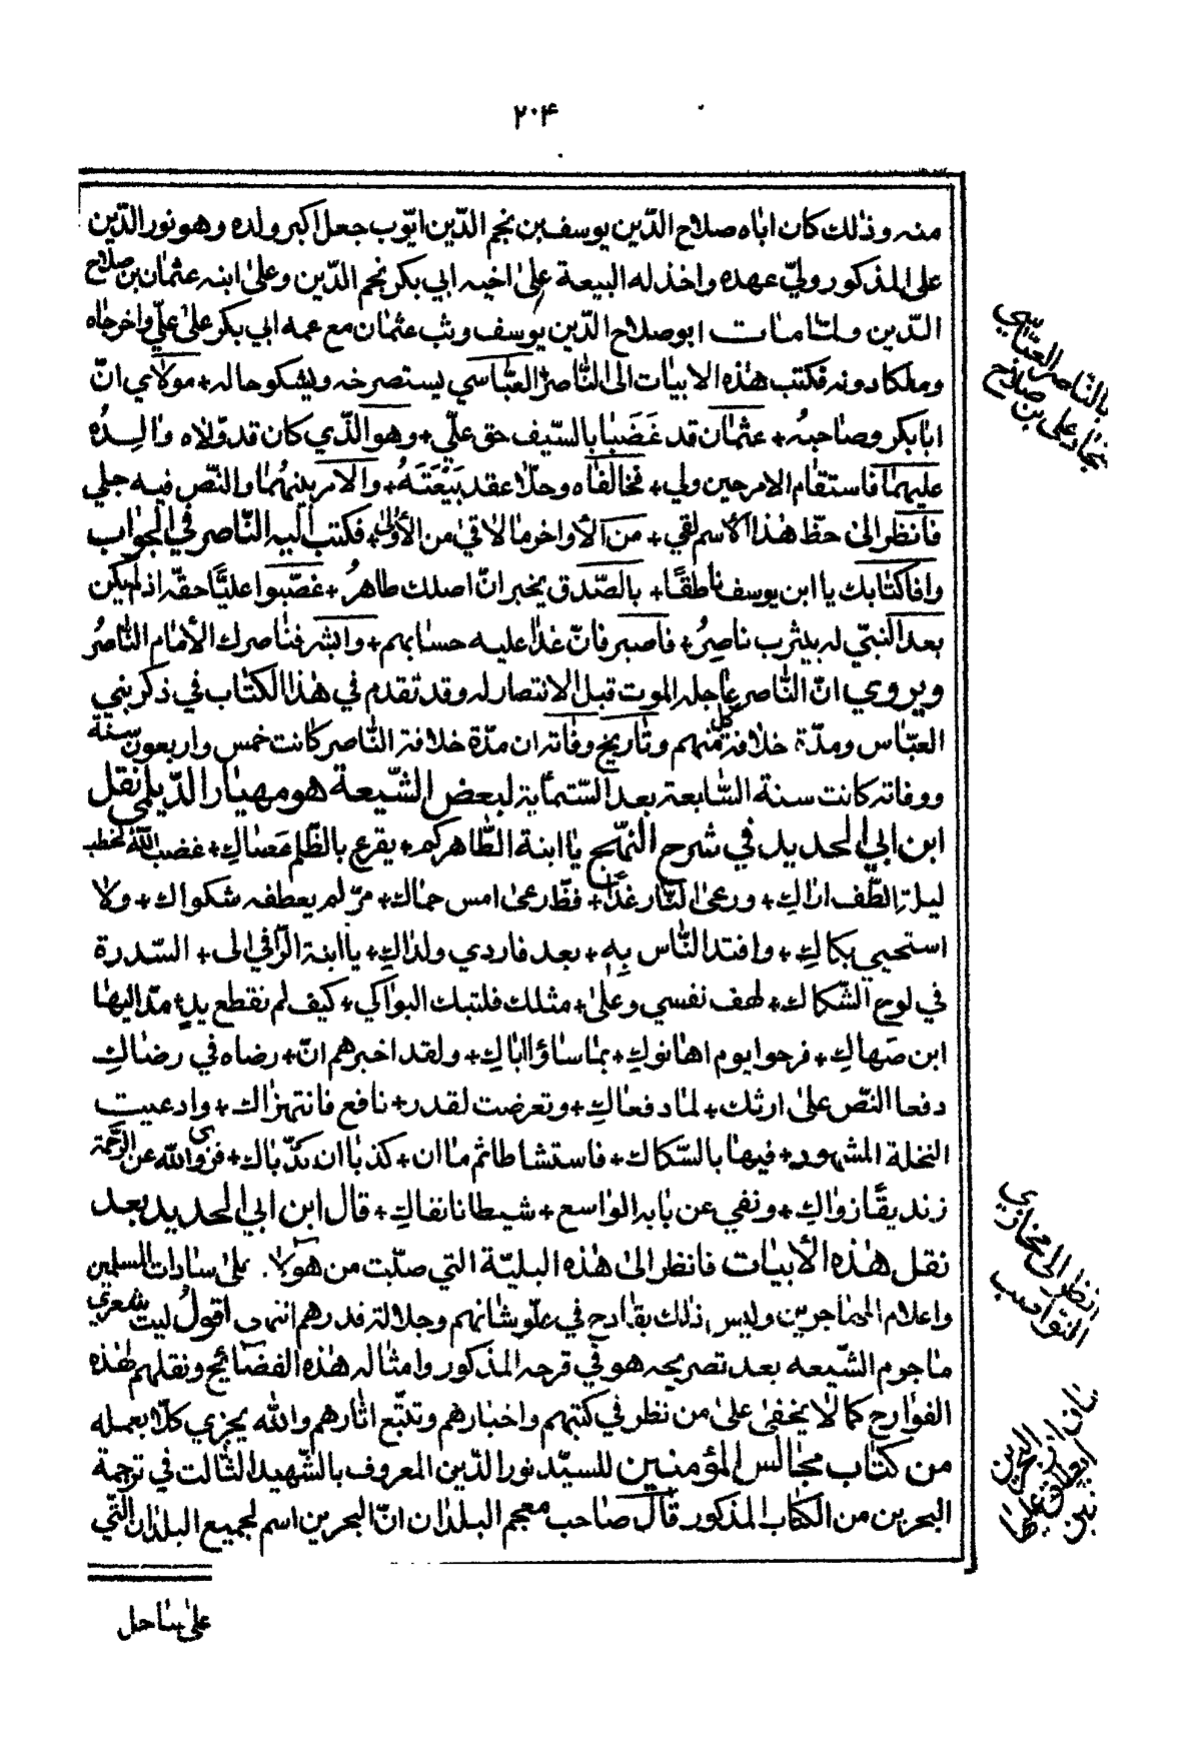 ٢٠٤
منه وذلك كان اباه صلاح الدّين يوسف بن نجم الدّين ايّوب جعل اكبر ولده وهو نور الدّين
على المذكور وليّ عهده واخذ له البيعة على اخيه ابي بكر نجم الدّين وعلى ابنه عثمان بن صلاح
الدّين ولمّا مات ابو صلاح الدّين يوسف وثب عثمان مع عمه ابي بكر على علّي واخرجاه
وملكا دونه فكتب هذه الابيات الى النّاصر العبّاسي يستصرخه ويشكو حاله + مولاي انّ
ابا بكر وصاحبهُ + عثمان قد غَضَبا بالسّيف حق علّي + وهو الّذي كان قد ولاه والِدُه
عليهما فاستقام الامر حين ولي + فخالفاه وحلّا عقد بَيْعَتَهُ + والامر بينهُما والنّص فيه جلي
فانظر الى حظّ هذا الأسم لقي + من الأواخر ما لاقى من الأولى + فكتب اليه النّاصر في الجواب
وافا كتابك يا ابن يوسف ناطقًا + بالصّدق يخبر انّ اصلك طاهرُ + غصّبوا عليّا حقّه اذ لم يكن
بعد النبّي له بيثرب ناصِرُ + فاصبر فانّ غدًا عليه حسابهم + وابشر فناصرك الأمام النّاصرُ
ويروي انّ النّاصر عاجله الموت قبل الانتصار له وقد تقدم في هذا الكتاب في ذكر بني
العبّاس ومدّة خلافة كل منهم وتاريخ وفاته ان مدّة خلافة النّاصر كانت خمس واربعون سنة
ووفاته كانت سنة السّابعة بعد السّتمأية لبعض الشّيعة هو مهيار الدّيلمي نقل
ابن ابي الحديد في شرح النّهج يا ابنة الطّاهر كم + يقرع بالظّلم عَصَاكِ + غضب اللّه لخطب
ليلة الطّف اراكِ + ورعى النّار غدًا + فظّ رعى امس حماك + مرّ لم يعطفه شكواك + ولا
استحيى بكاكِ + وافتد النّاس بهِ + بعد فاردي ولداكِ + يا ابنة الرّاقي الى + السّدرة
في لوح السّكاك + لهف نفسي وعلى + مثلك فلتبك البواكي + كيف لم نقطع يدٍ + مدّ اليها
ابن صَهاكِ + فرحوا يوم اهانوكِ + بما ساؤا اباكِ + ولقد اخبرهم انّ + رضاه في رضاكِ
دفعا النّص على ارثك + لما دفعاكِ + وتعرضت لقدر + نافع فانتهزاك + وادعيت
النخلة المشهود + فيها بالسّكاك + فاستشاطا ثم ما ان + كذبا ان كذّباك + فزوى واللّه عن الرّحمة
زنديقًا زواكِ + ونفي عن بابه الواسع + شيطانا نفاكِ + قال ابن ابي الحديد بعد
نقل هذه الأبيات فانظر الى هذه البليّة التي صلّت من هؤلاء على سادات المسلمين
واعلام المهاجرين وليس ذلك بقادح في علّو شانهم وجلالة قدرهم انتهى اقولُ ليت شعري
ما جرم الشّيعه بعد تصريحه هو في قرحه المذكور وامثاله هذه الفضائح ونقلهم لهذه
القوارح كما لا يخفى على من نظر في كتبهم واخبارهم وتتبّع اثارهم واللّه يجزي كلّا بعمله
من كتاب مجالس المؤمنين للسيّد نور الدّين المعروف بالشّهيد الثالت في ترجمة
البحرين من الكتاب المذكور قال صاحب معجم البلدان انّ البحرين اسم لجميع البلدان التّي
على ساحل
بالنّاصر العبّاسي
على بن صلاح
انظر الى مخازي
النواصب